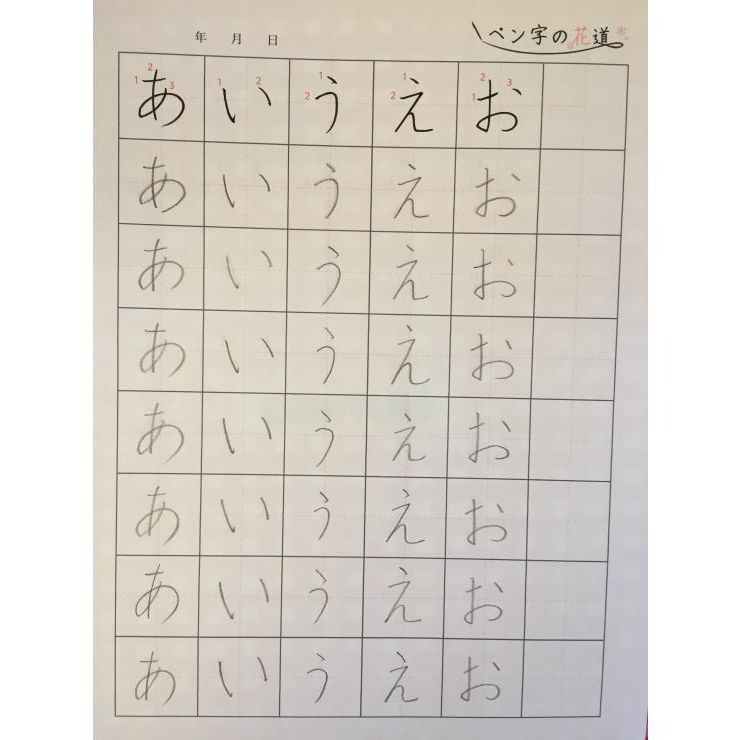 年 月 日 ペン字の花道
1 2 3 あ 1 2 い 1 2 う 1 2 え 1 2 3 お
あ い う え お
あ い う え お
あ い う え お
あ い う え お
あ い う え お
あ い う え お
あ い う え お